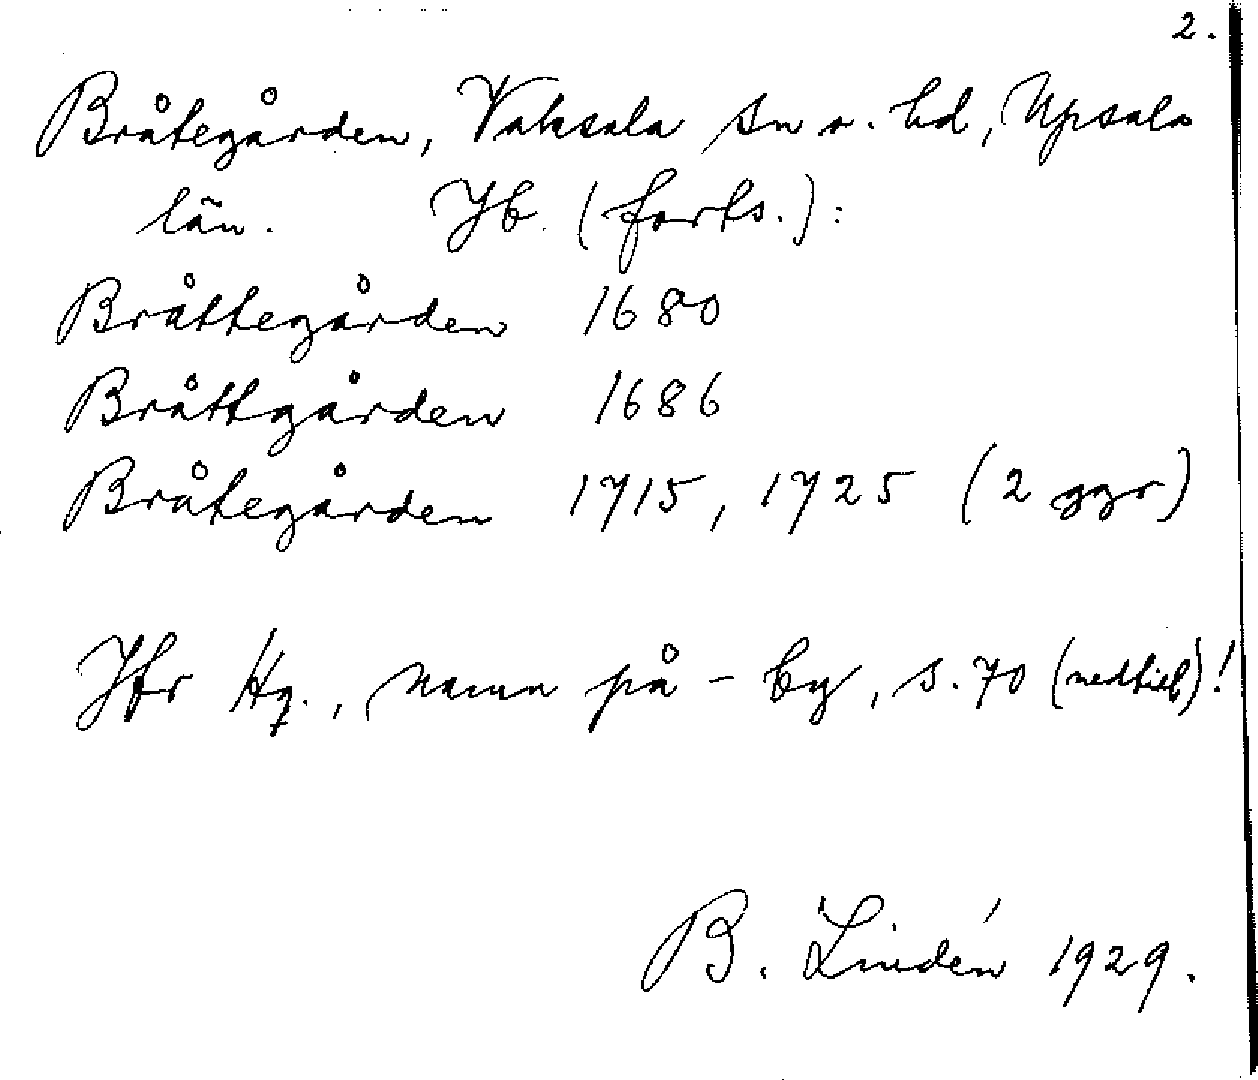 2.
Bråtegården, Vaksala sn o. hd, Upsala
län. Jb. (forts.):
Bråttegården 1680
Bråttgården 1686
Bråtegården 1715, 1725 (2 ggr)
Jfr Hq., namn på - by, s. 70 (nedtill)!
B. Lindén 1929.